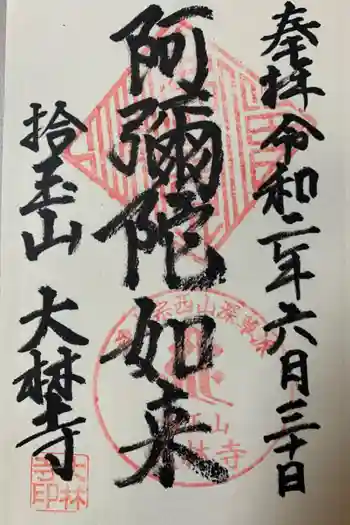 奉拝令和二年六月三十日
阿彌陀如来
拾玉山 大林寺
大林寺印